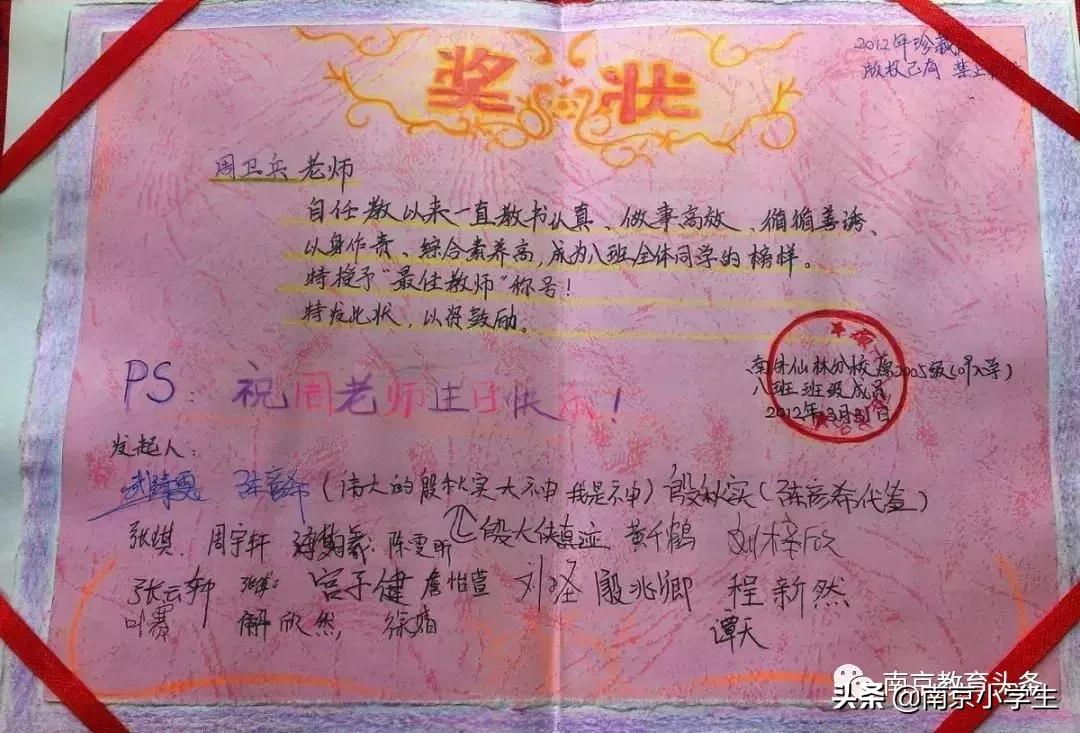 奖状
2012年珍藏
版权已有 禁止
周卫兵老师
自任教以来一直教书认真、做事高效、循循善诱、
以身作责、综合素养高,成为八班全体同学的榜样。
特授予“最佳教师”称号!
特发此状,以资鼓励。
南外仙林分校 原2005级(09入学)
八班班级成员
2012年3月31日
PS: 祝周老师生日快乐!
发起人:
(伟大的殷秋实大神 我是神) 殷秋实(陈彦希代签)
张琪 周宇轩 陈雯昕 段大侠真迹 黄千鹤 刘梓欣
张云轩 宫子健 詹怡萱 刘圣 殷兆卿 程新然
叶赛 解欣然, 徐婧 谭天
南京教育头条
头条 @南京小学生